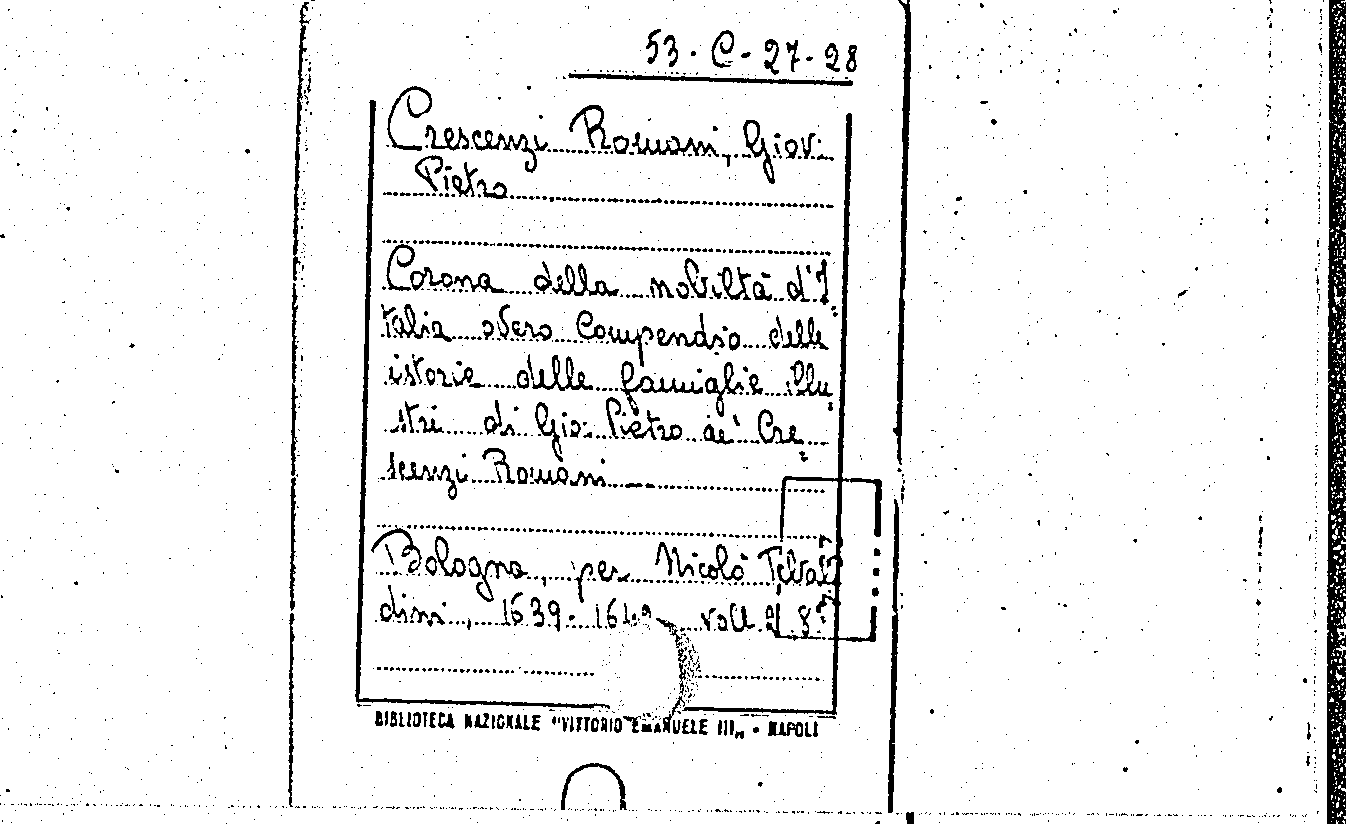 53-C-27-28
Crescenzi Romani, Giov.
Pietro
Corona della nobiltà d'I=
talia overo Compendio delle
istorie delle famiglie illu=
stri di Gio: Pietro de' Cre=
scenzi Romani
Bologna, per Nicolò Tebal=
dini, 1639-1642 voll. 2 8º
BIBLIOTECA NAZIONALE "VITTORIO EMANUELE III„ - NAPOLI